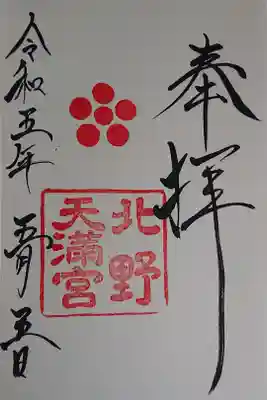 奉拝
北野
天満宮
令和五年 五月 五日